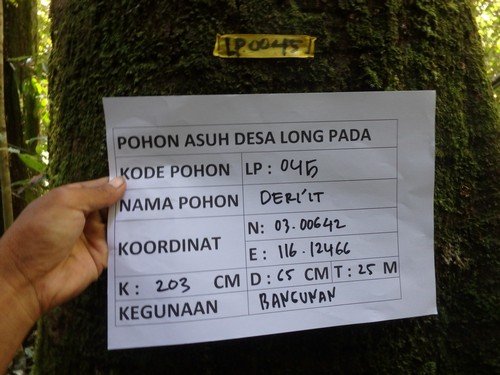 LP0045
POHON ASUH DESA LONG PADA
KODE POHON LP : 045
NAMA POHON DERI'IT
KOORDINAT N: 03.00642
E : 116.12466
K : 203 CM D : 65 CM T : 25 M
KEGUNAAN BANGUNAN